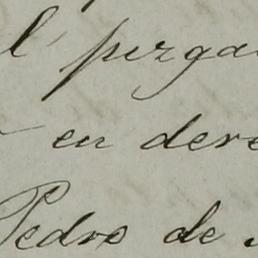 l' pirga
en dere
Pedro de